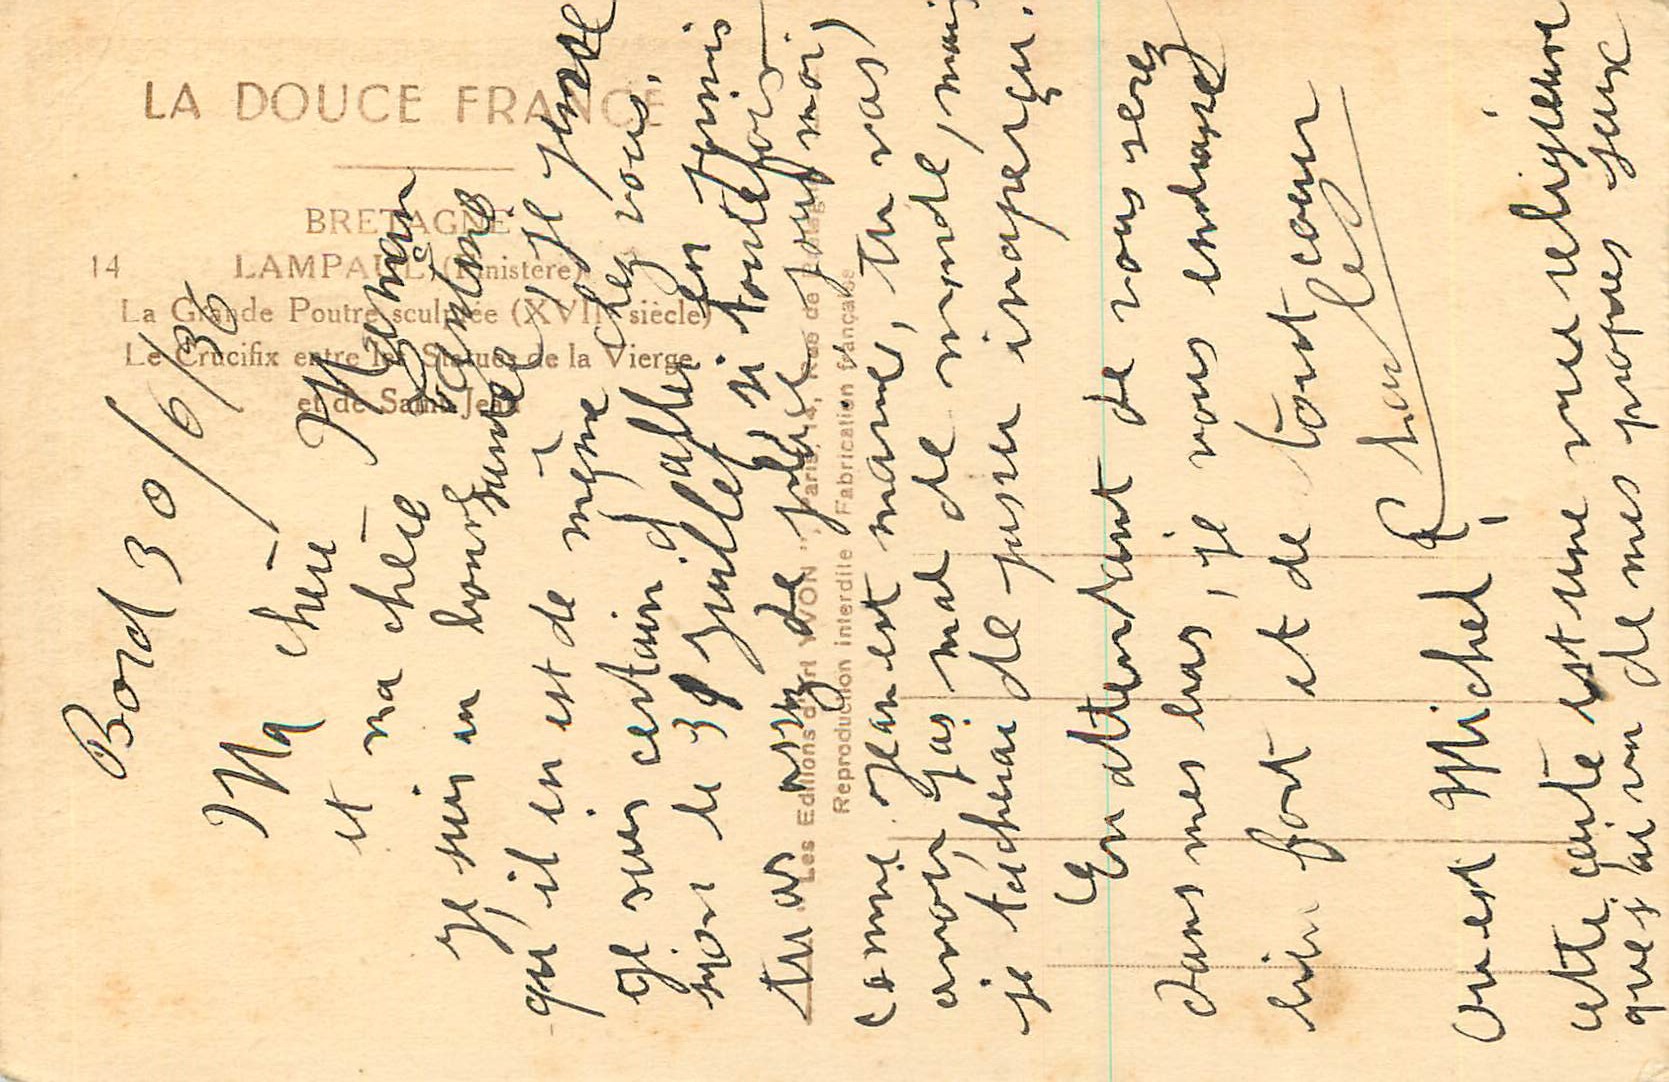 LA DOUCE FRANCE
BRETAGNE
14 LAMPAUL (Finistère)
La Grande Poutre sculptée (XVIIe siècle)
Le Crucifix entre les Statues de la Vierge
et de Saint Jean
Les Editions d'Art YVON", Paris, 14, Rue de
Reproduction interdite Fabrication française
Bord 30/6/36
Ma chère Maman
et ma chère
Je suis en bonne santé, je pense
qu'il en est de même chez vous.
Je suis certain d'aller en permis
sion le 31 juillet si toutefois
tu as assez de place pour moi,
comme Jean est marié, tu vas
avoir pas mal de monde, mais
je tacherai de passer inaperçu.
En attendant de vous serez
dans mes bras, je vous embrasse
bien fort et de tout coeur
Charles
Ou est Michel !
cette carte est une vue religieuse
que j'ai vu de mes propres yeux